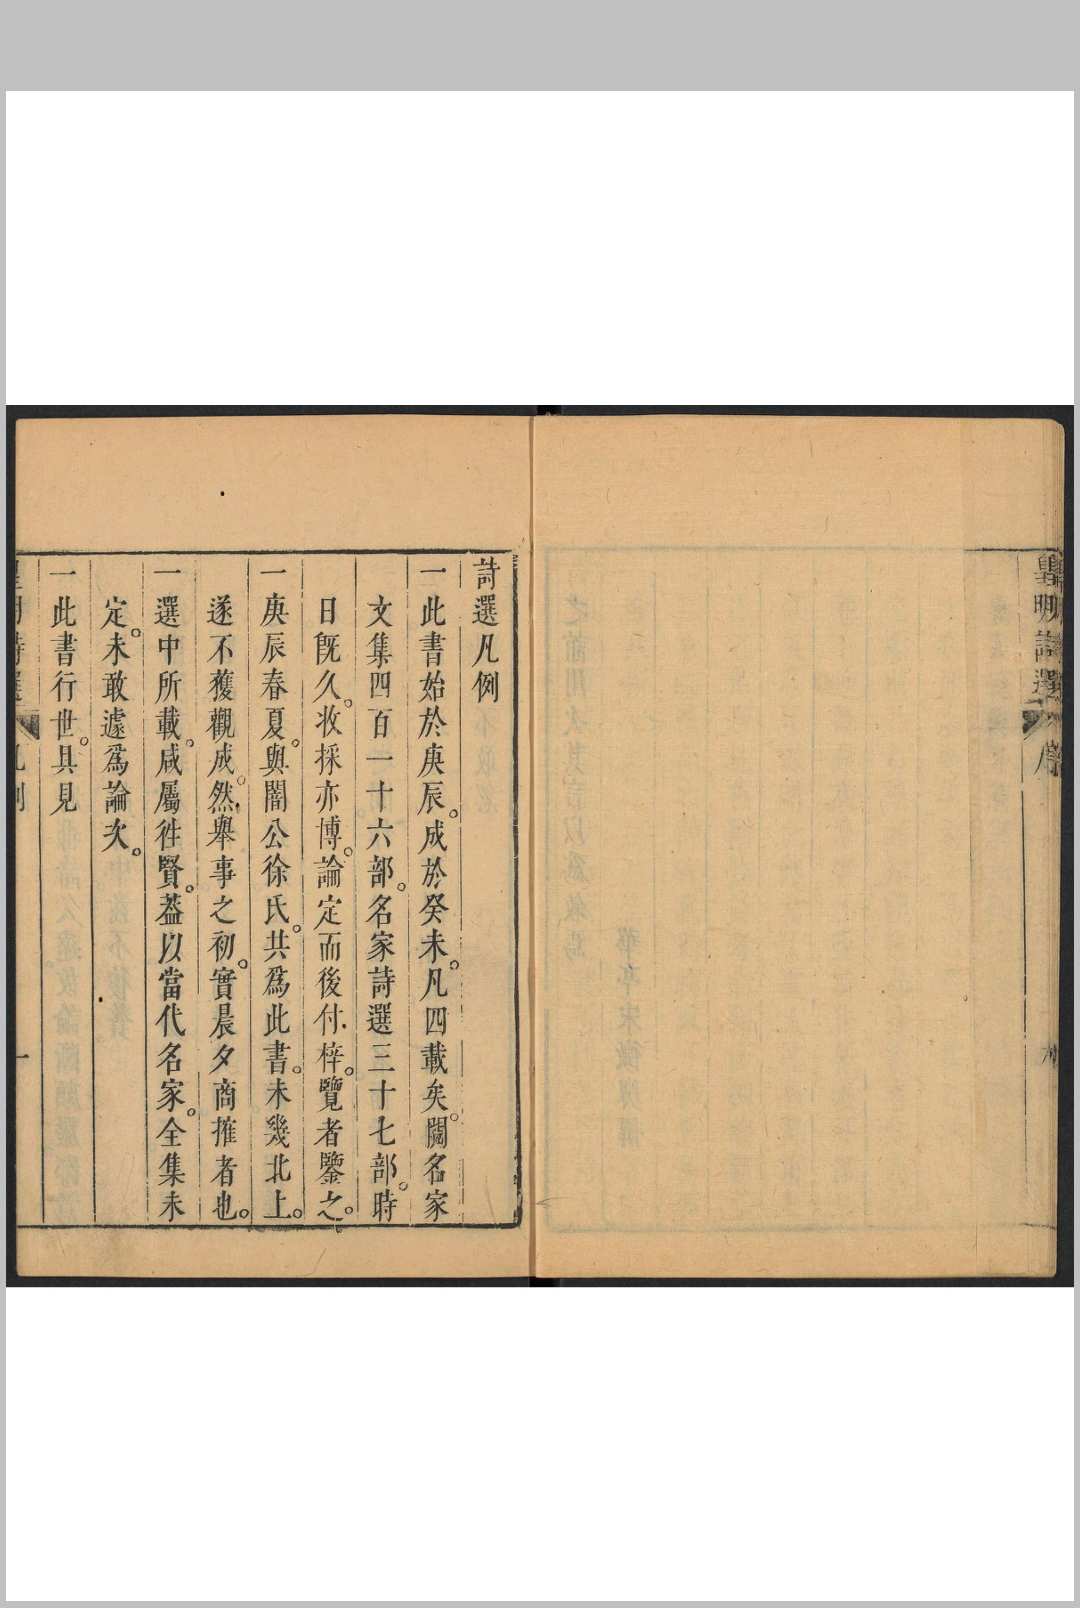 皇明詩選
序
詩選凡例
一此書始於庚辰。成於癸未。凡四載矣。閱名家
文集四百一十六部。名家詩選三十七部。時
日旣久。收採亦博。論定而後付梓。覽者鑒之。
一庚辰春夏。與闇公徐氏。共爲此書。未幾北上。
遂不獲觀成。然舉事之初。實晨夕商搉者也。
一選中所載。咸屬徃賢。葢以當代名家。全集未
定。未敢遽爲論次。
一此書行世。具見
皇明詩選
凡例
一